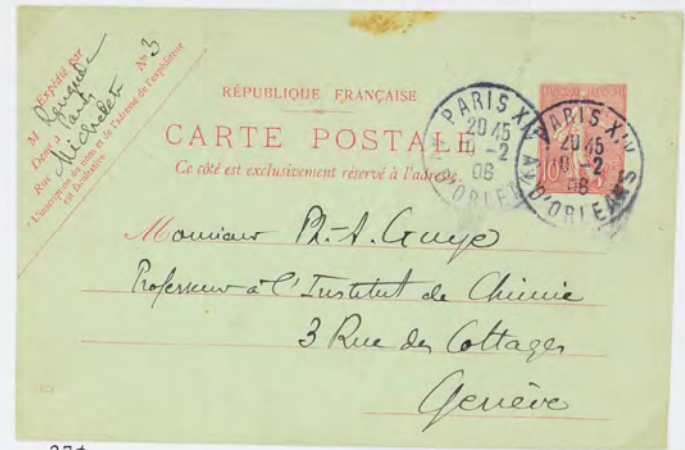 Expédié par
M Rengade
Demt à Paris
Rue Michelet Nº 3
* L'inscription du nom et de l'adresse de l'expéditeur
est facultative.
RÉPUBLIQUE FRANÇAISE
CARTE POSTALE
Ce côté est exclusivement réservé à l'adresse.
PARIS XIV
20 45
10 -2
08
AV. D'ORLEANS
PARIS XIV
20 45
10 -2
08
AV. D'ORLEANS
10
Monsieur Ph.-A. Guye
Professeur à l'Institut de Chimie
3 Rue des Cottages
Genève